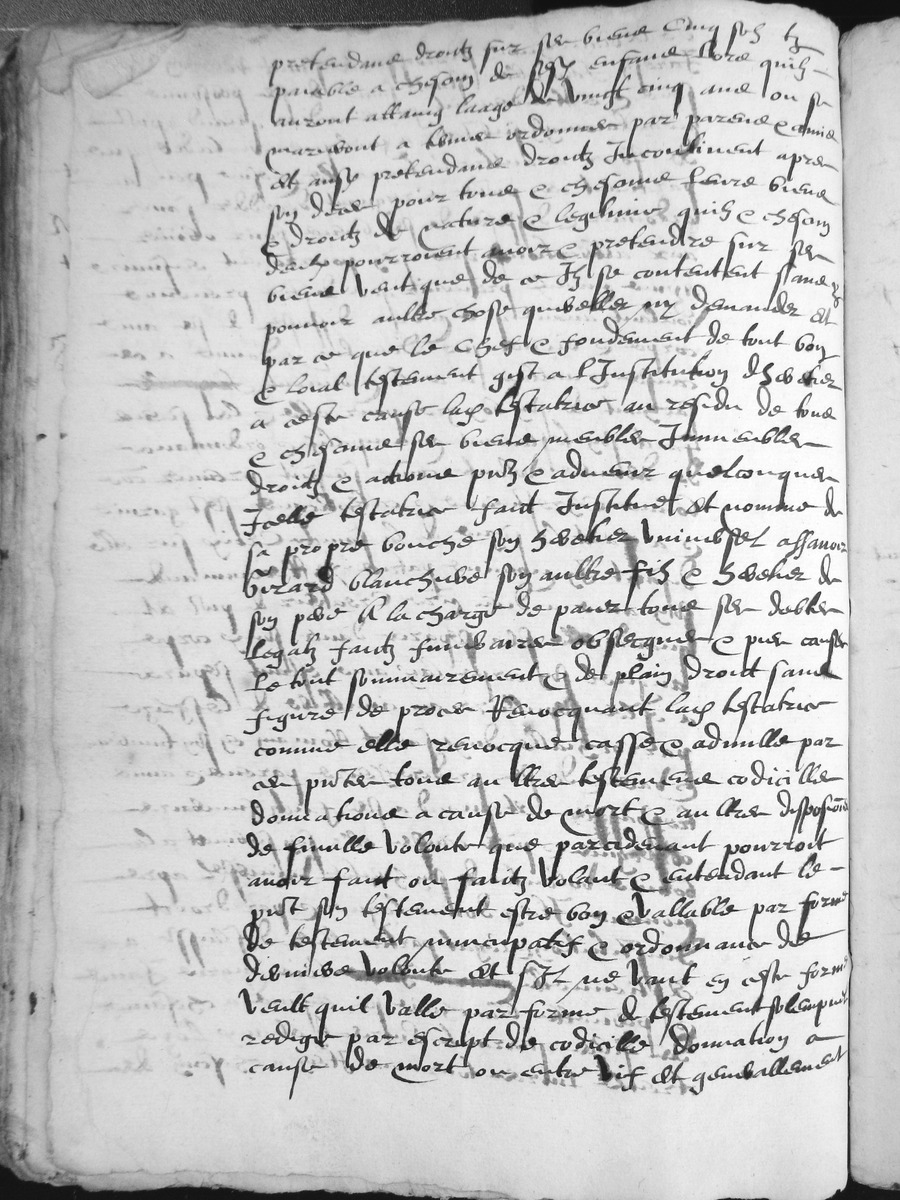 pretendans droitz sur ses biens Cinq solz tz
paiable a chescun de sesd enfans lors quilz
auront attaing laage de vingt cinq ans ou se
mariront a termes ordonnes par parens & amis
et ausd pretendans droitz Incontinent apres
son deces pour tous & chescuns leurs biens
& droitz de nature & legitime quilz & chescun
deulx pourroient avoir & pretendre sur ses
biens veut que de ce Ilz se contentent sans
pouvoir aultre chose quereller ny demander Et
par ce que le Chef & fondement de tout bon
& loial testement gist a l Institution dheretier
a ceste cause lad testatrice au residu de tous
& chescuns ses biens meubles Immeubles
droitz & actions pntz & advenir quelconques
Icelle testatrice faict Institue et nomme de
sa propre bouche son heretier universel assavoir
Girard blanchure son aultre filz & heretier de
son pere A la charge de paier tous ses debtes
legatz faitz funeraires obseques & pies causes
le tout sommairement & de plain droict sans
figure de proces Revocquant lad testatrice
comme elle revocque casse & adnulle par
ces pntes tous aultres testemens codicilles
donnations a cause de mort & aultres disposions
de finulle volonte que parcidevant pourroit
avoir faict ou faictz volant & entendant le
pnt son testement estre bon & vallable par forme
de testement nuncupatif & ordonnance de
derniere volonte et sIl ne vaut en ceste forme
veult quil valle par forme de testement solempnel
redige par escript de codicille donnation a
cause de mort ou entre vif et generallement